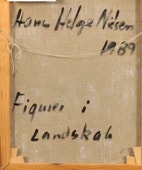 Hans Helge Nilsen
1989
Figurer i
Landskab